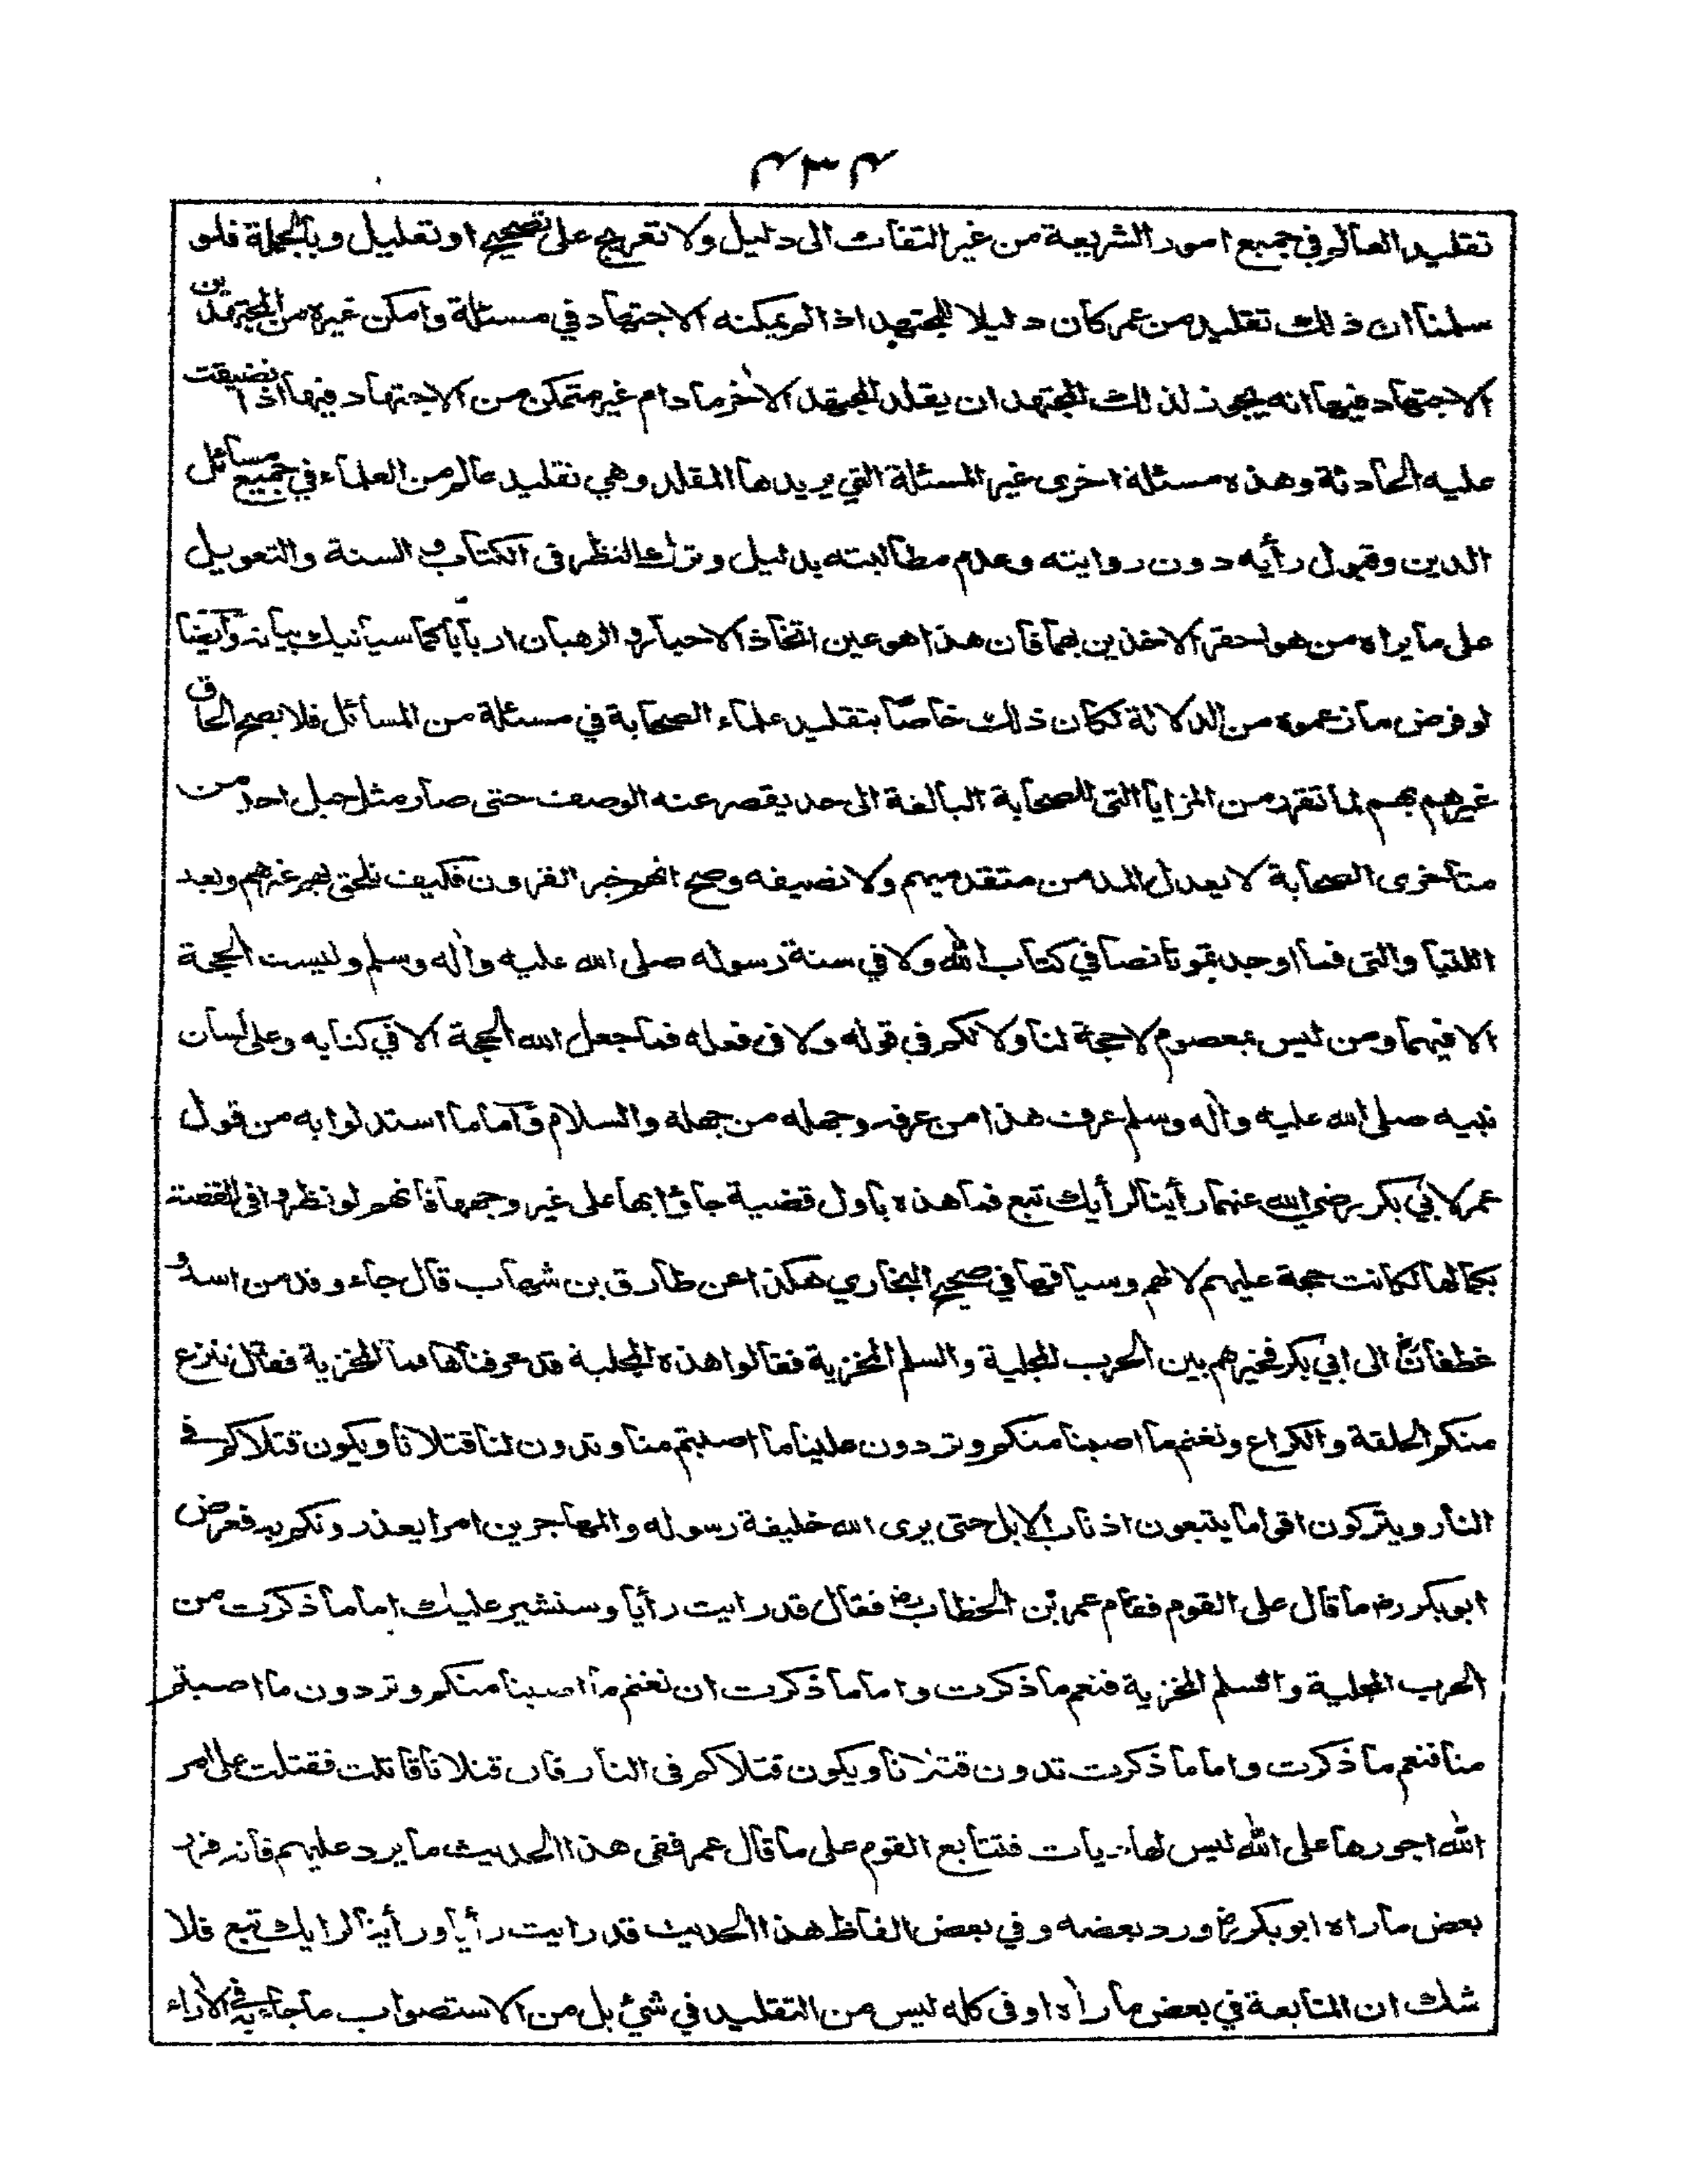 ٤٣٤
تقليد العالم في جميع امور الشريعة من غير التفات الى دليل ولا تعريج على تصحيح او تعليل وبالجملة فلو
سلمنا ان ذلك تقليد من عمر كان دليلا للمجتهد اذا لم يمكنه الاجتهاد في مسئلة وامكن غيره من المجتهدين
الاجتهاد فيها انه يجوز لذلك المجتهد ان يقلد المجتهد الاخر ما دام غير متمكن من الاجتهاد فيها اذا تضيقت
عليه الحادثة وهذه مسئلة اخرى غير المسئلة التي يريدها المقلد وهي تقليد عالم من العلماء في جميع مسائل
الدين وقبول رأيه دون روايته وعدم مطالبته بدليل وترك النظر فى الكتاب والسنة والتعويل
على ما يراه من هو احقر الاخذين بهما فان هذا هو عين اتخاذ الاحبار والرهبان اربابا كما سيأتيك بيانه وايضا
لو فرض ما زعموه من الدلالة لكان ذلك خاصا بتقليد علماء الصحابة في مسئلة من المسائل فلا يصح الحاق
غيرهم بهم لما تقرر من المزايا التى للصحابة البالغة الى حد يقصر عنه الوصف حتى صار مثل جبل احد من
متأخرى الصحابة لا يعدل المد من متقدميهم ولا نصيفه وصح انهم خير القرون فكيف نلحق بهم غيرهم وبعد
اللتيا والتى فما اوجدتمونا نصا في كتاب الله ولا في سنة رسوله صلى الله عليه واله وسلم وليست الحجة
الا فيهما ومن ليس بمعصوم لا حجة لنا ولا لكم في قوله ولا فى فعله فما جعل الله الحجة الا في كتابه وعلى لسان
نبيه صلى الله عليه وآله وسلم عرف هذا من عرفه وجهله من جهله والسلام وآما ما استدلوا به من قول
عمر لابي بكر رضي الله عنهما رأينا لرأيك تبع فما هذه باول قضية جاؤا بها على غير وجهها فانهم لو نظروا فى القصة
بكمالها لكانت حجة عليهم لا لهم وسياقها في صحيح البخاري هكذا عن طارق بن شهاب قال جاء وفد من اسد و
غطفان الى ابي بكر فخيرهم بين الحرب المجلية والسلم المخزية فقالوا هذه المجلية قد عرفناها فما المخزية فقال ننزع
منكم الحلقة والكراع ونغنم ما اصبنا منكم وتردون علينا ما اصبتم منا وتدون لنا قتلانا ويكون قتلاكم في
النار ويتركون اقواما يتبعون اذناب الابل حتى يرى الله خليفة رسوله والمهاجرين امرا يعذرونكم به فعرض
ابو بكر رض ما قال على القوم فقام عمر بن الخطاب رض فقال قد رايت رأيا وسنشير عليك اما ما ذكرت من
الحرب المجلية والسلم المخزية فنعم ما ذكرت واما ما ذكرت ان نغنم ما اصبنا منكم وتردون ما اصبتم
منا فنعم ما ذكرت واما ما ذكرت تدون قتلانا ويكون قتلاكم فى النار فان قتلانا قاتلت فقتلت على امر
الله اجورها على الله ليس لها ديات فتتابع القوم على ما قال عمر ففى هذا الحديث ما يرد عليهم فانه قرر
بعض ما راه ابو بكر رض ورد بعضه وفي بعض الفاظ هذا الحديث قد رايت رأيا ورأينا لرايك تبع فلا
شك ان المتابعة في بعض ما رآه او فى كله ليس من التقليد في شئ بل من الاستصواب ما جاء به في الآراء